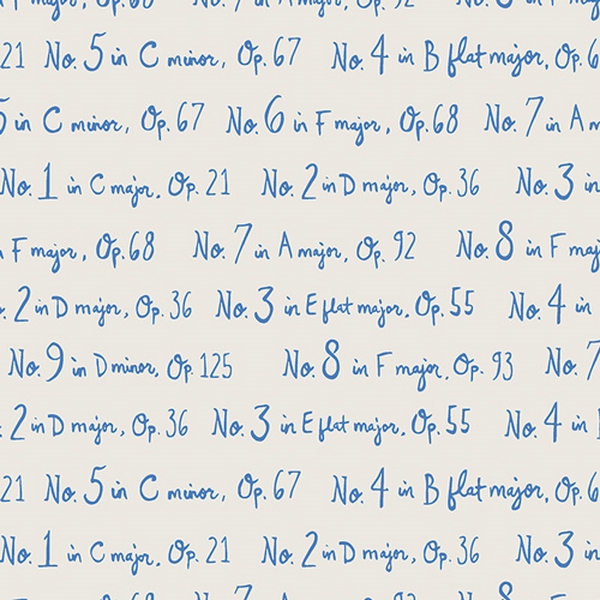 21 No. 5 in C minor, Op. 67 No. 4 in B flat major, Op. 6
5 in C minor, Op. 67 No. 6 in F major, Op. 68 No. 7 in A m
No. 1 in C major. Op. 21 No. 2 in D major, Op. 36 No. 3 in
F major, Op. 68 No. 7 in A major, Op. 92 No. 8 in F maj
. 2 in D major, Op. 36 No. 3 in E flat major. Op. 55 No. 4 in
No. 9 in D minor, Op. 125 No. 8 in F major. Op. 93 No. 7
. 2 in D major, Op. 36 No. 3 in E flat major. Op. 55 No. 4 in
21 No. 5 in C minor, Op. 67 No. 4 in B flat major, Op. 6
No. 1 in C major. Op. 21 No. 2 in D major, Op. 36 No. 3 in